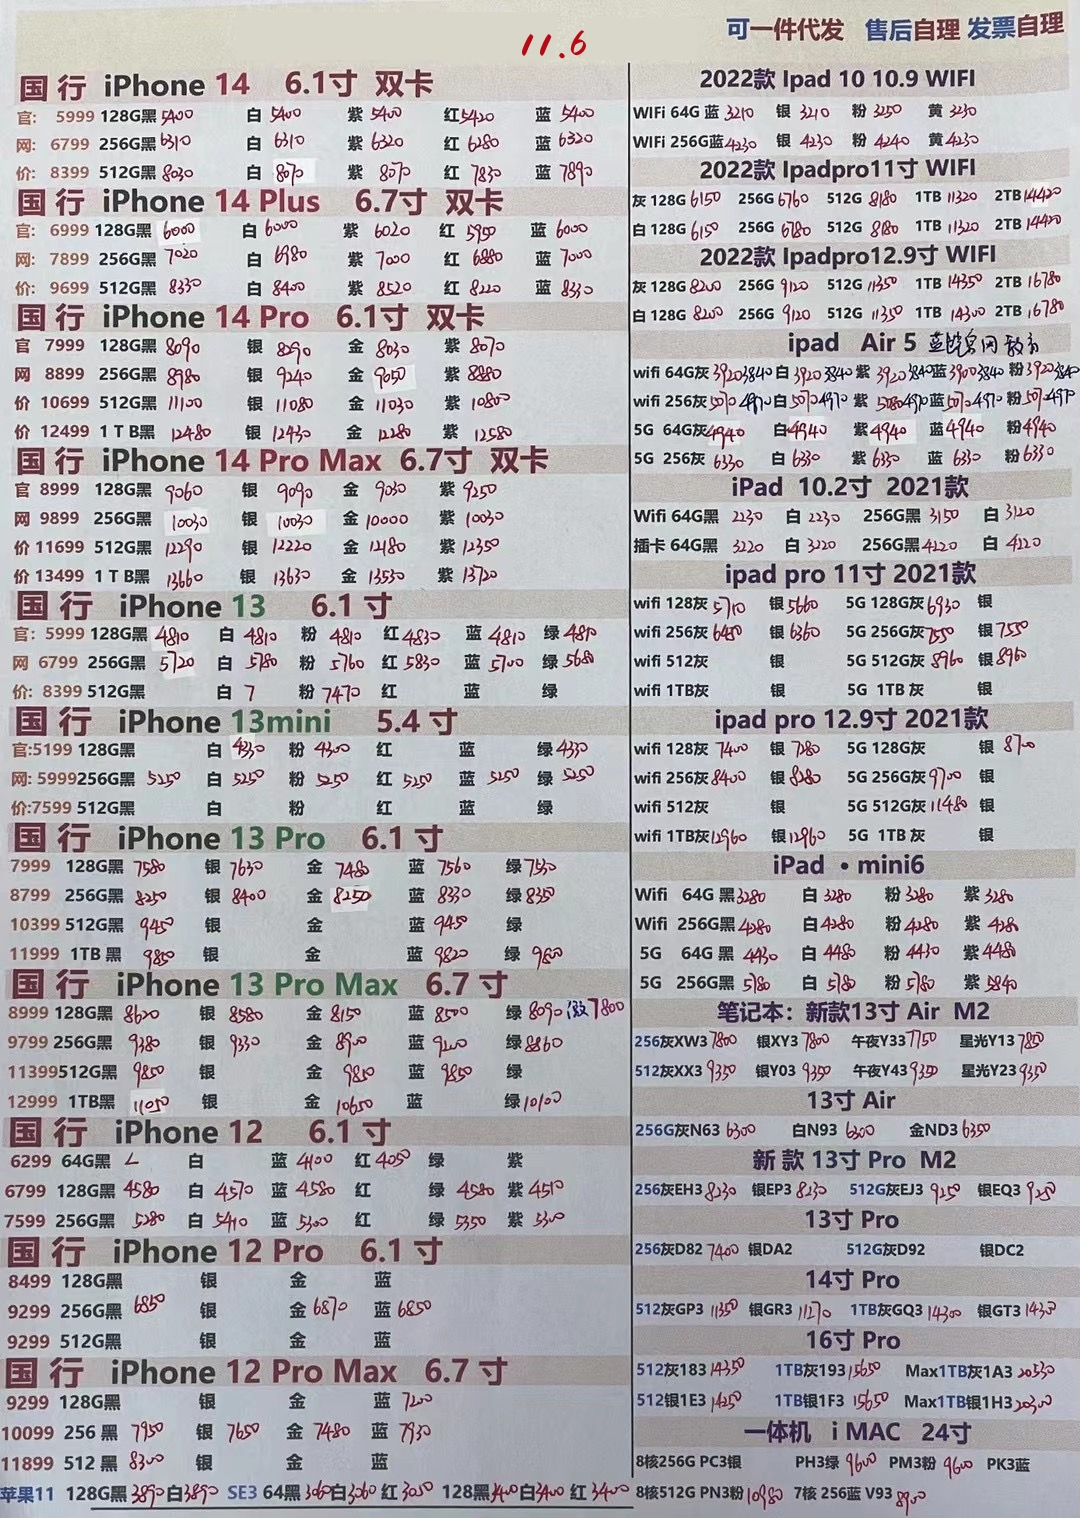 11.6
可一件代发 售后自理 发票自理
国 行 iPhone 14 6.1寸 双卡
官: 5999 128G黑 5400 白 5400 紫 5400 红 5420 蓝 5400
网: 6799 256G黑 6310 白 6310 紫 6320 红 6280 蓝 6320
价: 8399 512G黑 8030 白 8070 紫 8070 红 7830 蓝 7890
国 行 iPhone 14 Plus 6.7寸 双卡
官: 6999 128G黑 6000 白 6000 紫 6020 红 5950 蓝 6000
网: 7899 256G黑 7020 白 6980 紫 7000 红 6880 蓝 7000
价: 9699 512G黑 8330 白 8400 紫 8520 红 8220 蓝 8330
国 行 iPhone 14 Pro 6.1寸 双卡
官 7999 128G黑 8090 银 8290 金 8030 紫 8070
网 8899 256G黑 8980 银 9240 金 9050 紫 8880
价 10699 512G黑 11100 银 11080 金 11030 紫 10800
价 12499 1 T B黑 12480 银 12430 金 12280 紫 12580
国 行 iPhone 14 Pro Max 6.7寸 双卡
官 8999 128G黑 9060 银 9090 金 9030 紫 9250
网 9899 256G黑 10030 银 10030 金 10000 紫 10030
价 11699 512G黑 12290 银 12220 金 12180 紫 12350
价 13499 1 T B黑 13660 银 13630 金 13530 紫 13720
国 行 iPhone 13 6.1 寸
官: 5999 128G黑 4810 白 4810 粉 4810 红 4830 蓝 4810 绿 4810
网 6799 256G黑 5720 白 5780 粉 5760 红 5830 蓝 5700 绿 5680
价: 8399 512G黑 白 7 粉 7470 红 蓝 绿
国 行 iPhone 13mini 5.4 寸
官:5199 128G黑 白 4330 粉 4300 红 蓝 绿 4330
网: 5999256G黑 5250 白 5250 粉 5250 红 5250 蓝 5250 绿 5250
价:7599 512G黑 白 粉 红 蓝 绿
国 行 iPhone 13 Pro 6.1 寸
7999 128G黑 7580 银 7630 金 7480 蓝 7560 绿 7530
8799 256G黑 8250 银 8400 金 8250 蓝 8330 绿 8350
10399 512G黑 9450 银 金 蓝 9450 绿
11999 1TB 黑 9850 银 金 蓝 9820 绿 9800
国 行 iPhone 13 Pro Max 6.7 寸
8999 128G黑 8620 银 8580 金 8150 蓝 8500 绿 8090 激7800
9799 256G黑 9380 银 9330 金 8900 蓝 9200 绿 8860
11399512G黑 9850 银 金 9850 蓝 9850 绿
12999 1TB黑 11050 银 金 10650 蓝 绿 10100
国 行 iPhone 12 6.1 寸
6299 64G黑 白 蓝 4100 红 4050 绿 紫
6799 128G黑 4580 白 4570 蓝 4580 红 绿 4580 紫 4510
7599 256G黑 5280 白 5410 蓝 5300 红 绿 5350 紫 5300
国 行 iPhone 12 Pro 6.1 寸
8499 128G黑 银 金 蓝
9299 256G黑 6850 银 金 6870 蓝 6850
9299 512G黑 银 金 蓝
国 行 iPhone 12 Pro Max 6.7 寸
9299 128G黑 银 金 蓝 7200
10099 256 黑 7950 银 7650 金 7480 蓝 7930
11899 512 黑 8300 银 金 蓝
苹果11 128G黑 3890 白 3890 SE3 64黑 3060 白 3060 红 3050 128黑 3400 白 3400 红 3400
2022款 Ipad 10 10.9 WIFI
WIFi 64G 蓝 3210 银 3210 粉 3250 黄 3230
WIFi 256G蓝 4230 银 4230 粉 4240 黄 4230
2022款 Ipadpro11寸 WIFI
灰 128G 6150 256G 6760 512G 8180 1TB 11320 2TB 14420
白 128G 6150 256G 6780 512G 8180 1TB 11320 2TB 14420
2022款 Ipadpro12.9寸 WIFI
灰 128G 8200 256G 9120 512G 11350 1TB 14350 2TB 16780
白 128G 8200 256G 9120 512G 11350 1TB 14300 2TB 16780
ipad Air 5 官网 教育
wifi 64G灰 3920 3840 白 3920 3840 紫 3920 3840 蓝 3900 3840 粉 3920 3840
wifi 256灰 5070 4970 白 5070 4970 紫 5080 4970 蓝 5070 4970 粉 5070 4970
5G 64G灰 4940 白 4940 紫 4940 蓝 4940 粉 4940
5G 256灰 6330 白 6330 紫 6330 蓝 6330 粉 6330
iPad 10.2寸 2021款
Wifi 64G黑 2230 白 2230 256G黑 3150 白 3120
插卡 64G黑 3220 白 3220 256G黑 4220 白 4220
ipad pro 11寸 2021款
wifi 128灰 5710 银 5660 5G 128G灰 6930 银
wifi 256灰 6450 银 6360 5G 256G灰 7550 银 7550
wifi 512灰 银 5G 512G灰 8960 银 8960
wifi 1TB灰 银 5G 1TB 灰 银
ipad pro 12.9寸 2021款
wifi 128灰 7400 银 7280 5G 128G灰 银 8700
wifi 256灰 8400 银 8280 5G 256G灰 9700 银
wifi 512灰 银 5G 512G灰 11480 银
wifi 1TB灰 12960 银 12960 5G 1TB 灰 银
iPad • mini6
Wifi 64G 黑 3280 白 3280 粉 3280 紫 3280
Wifi 256G黑 4280 白 4280 粉 4280 紫 4280
5G 64G 黑 4430 白 4480 粉 4430 紫 4480
5G 256G黑 5780 白 5780 粉 5780 紫 5840
笔记本: 新款13寸 Air M2
256灰XW3 7800 银XY3 7800 午夜Y33 7750 星光Y13 7850
512灰XX3 9350 银Y03 9350 午夜Y43 9350 星光Y23 9350
13寸 Air
256G灰N63 6300 白N93 6300 金ND3 6350
新 款 13寸 Pro M2
256灰EH3 8230 银EP3 8230 512G灰EJ3 9250 银EQ3 9250
13寸 Pro
256灰D82 7400 银DA2 512G灰D92 银DC2
14寸 Pro
512灰GP3 11350 银GR3 11270 1TB灰GQ3 14300 银GT3 14330
16寸 Pro
512灰183 14350 1TB灰193 15650 Max1TB灰1A3 20530
512银1E3 14250 1TB银1F3 15650 Max1TB银1H3 20300
一体机 i MAC 24寸
8核256G PC3银 PH3绿 9600 PM3粉 9600 PK3蓝
8核512G PN3粉 10980 7核 256蓝 V93 8900